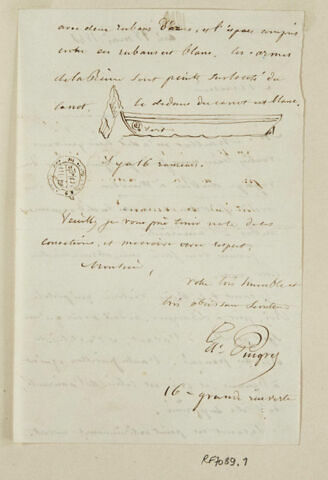 avec deux rubans d'azur, et l'espace compris
entre ces rubans est blanc. les armes
de la Reine sont peintes sur le côté du
canot. le dedans du canot est blanc.
Vert
il y a 16 rameurs.
Veuillez, je vous prie tenir note de ces
corrections, et me croire avec respect,
Monsieur,
votre très humble et
très obéissant serviteur
Ed. Pingret
16 - grande rue verte
RF7089.1